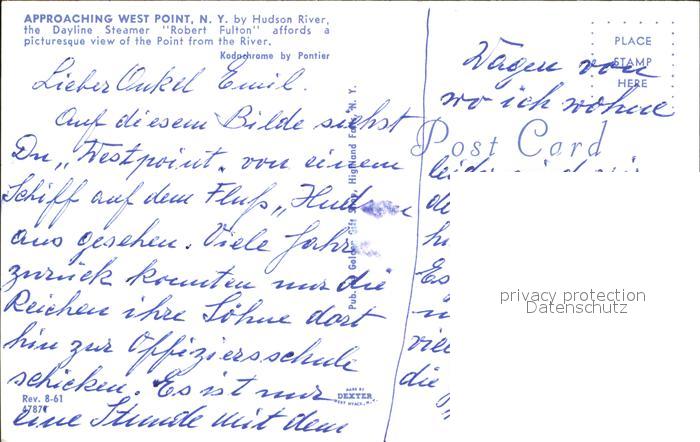 APPROACHING WEST POINT, N. Y. by Hudson River,
the Dayline Steamer "Robert Fulton" affords a
picturesque view of the Point from the River.
Kodachrome by Pontier
Lieber Onkel Emil.
Auf diesem Bilde siehst
Du „Westpoint" von einem
Schiff auf dem Fluß „Hudson
aus gesehen. Viele Jahre
zurück konnten nur die
Reichen ihre Söhne dort
hin zur Offiziersschule
schicken. Es ist nur
eine Stunde mit dem
Rev. 8-61
MADE BY
DEXTER
WEST NYACK, N.Y.
Pub. Gift Highland Falls, N. Y.
PLACE
STAMP
HERE
Post Card
Wagen von
wo ich wohne
leider
Es
die
privacy protection
Datenschutz